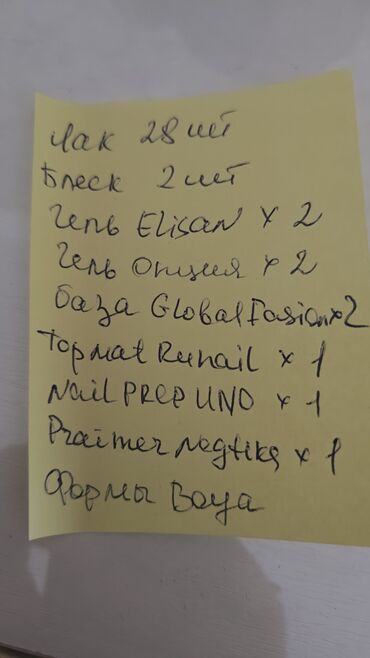 Лак 28 шт
Блеск 2 шт
Гель Elisan x 2
Гель Опция x 2
База Global Fasion x2
Topmat Runail x 1
Nail PREP UNO x 1
Praimer nogtika x 1
Формы Boya